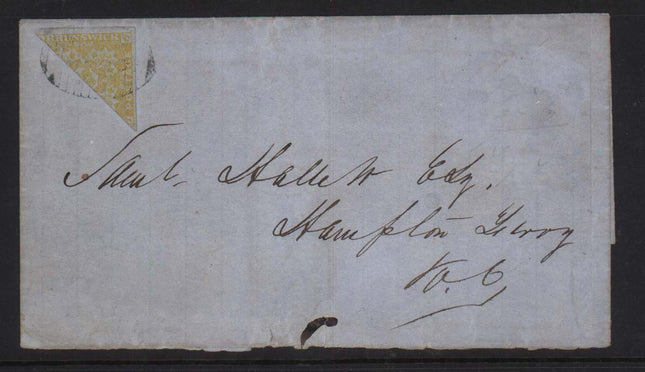 BRUNSWICK
Saml. Hallett Esq.
Hampton Ferry